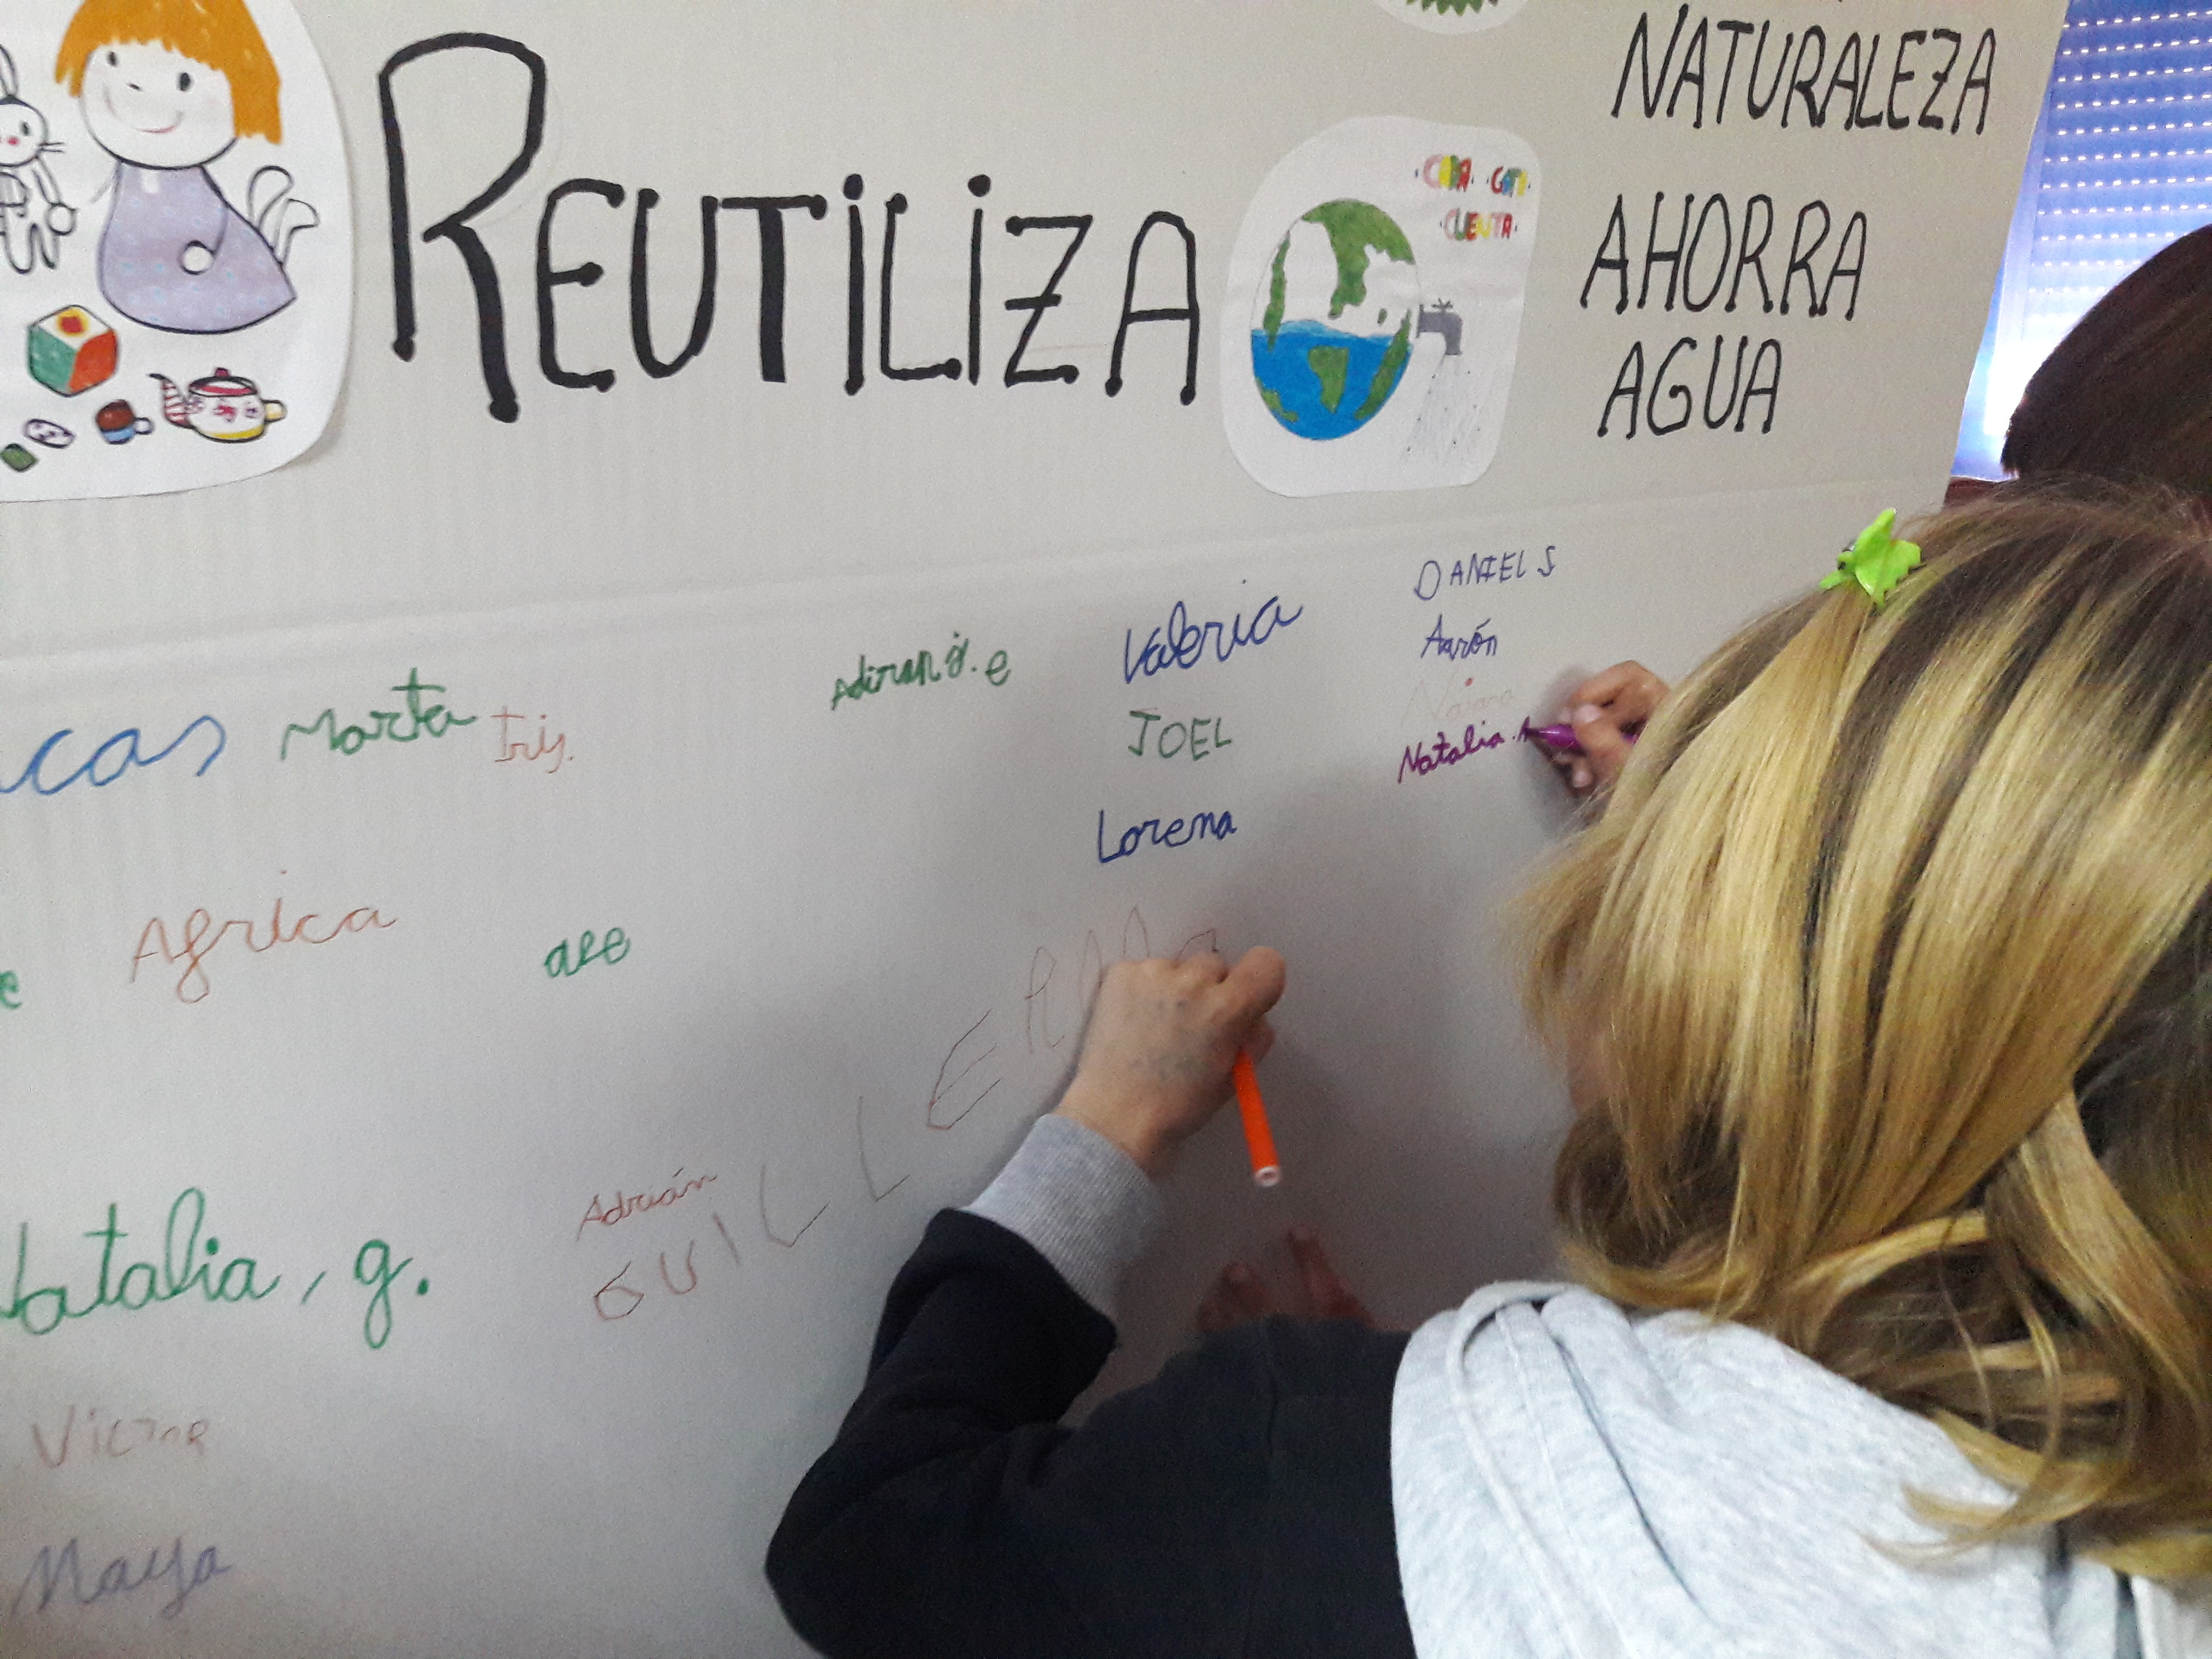 REUTILIZA
NATURALEZA
CADA GOTA
CUENTA
AHORRA
AGUA
DANIEL S
Aarón
Naiara
Natalia.
Valeria
JOEL
Lorena
cas
Marta
Iris.
Africa
ale
Adrián
GUILLERMO
Natalia, g.
VICTOR
Maya